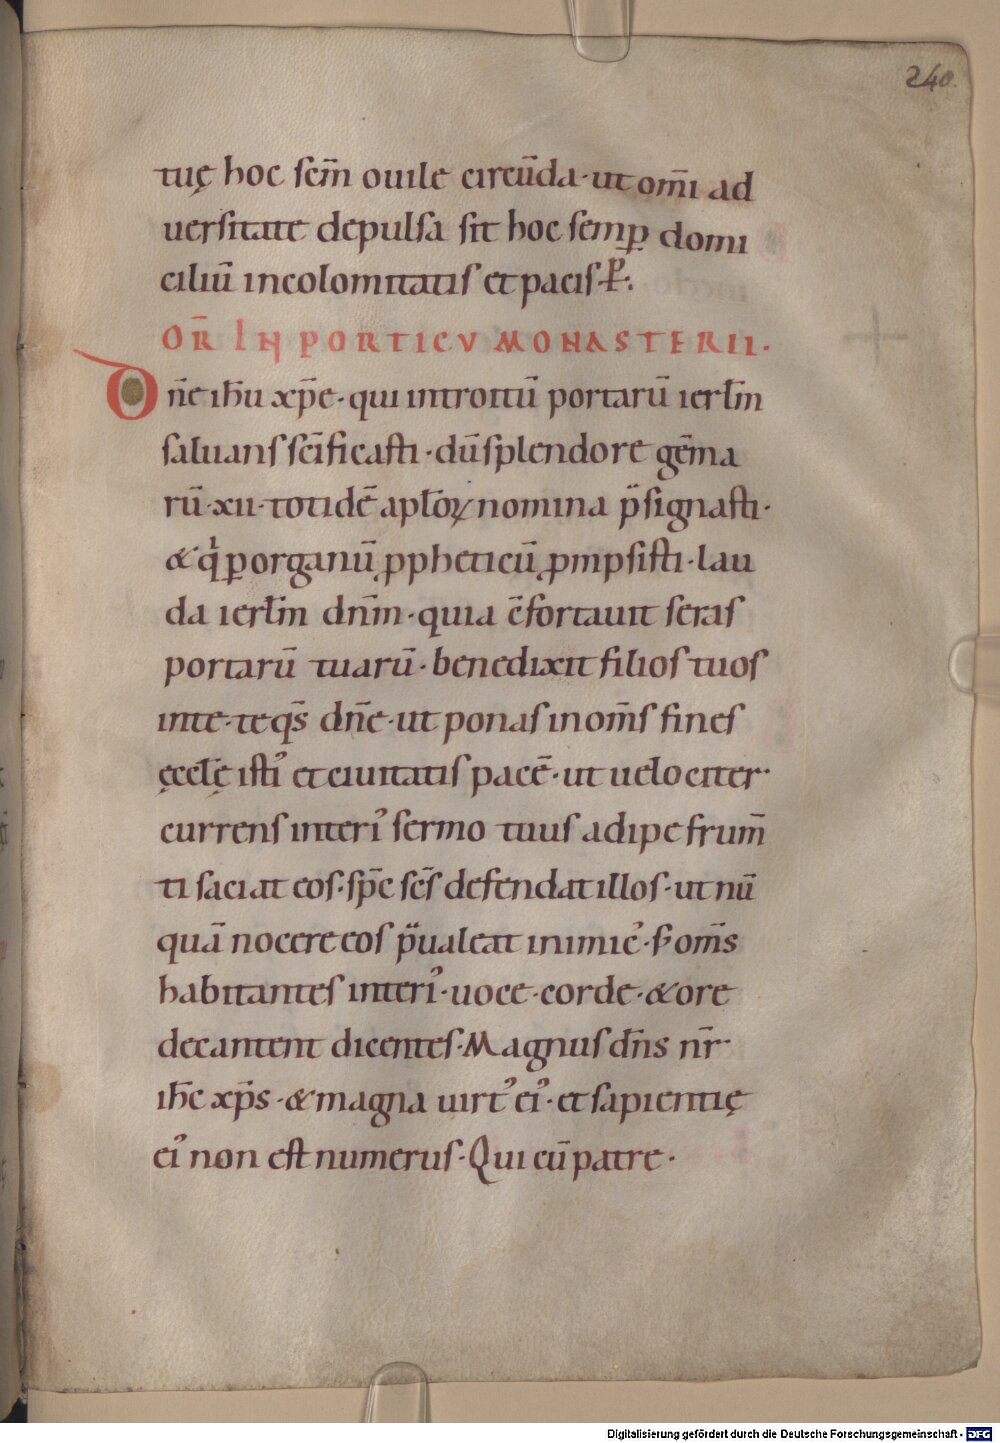 240.
tuę hoc scm̄ ouile circūda · ut om̄i ad
uersitate depulsa sit hoc semꝑ domi
ciliū incolomitatis et pacis · ꝑ ·
OR̄ IN PORTICV MONASTERII ·
Dn̄e ih̄u xp̄e · qui introitū portarū ierłm
saluans scīficasti · dū splendore gēma
rū · xii · totidē aplōꝝ nomina p̈signasti ·
& q̍ ꝑ organū ꝓpheticū ꝓmpsisti · lau
da ierłm dn̄m · quia c̄fortauit seras
portarū tuarū · benedixit filios tuos
in te · te qs̄ dn̄e · ut ponas in om̄s fines
ęcclę̄ istiꝰ et ciuitatis pacē · ut uelociter ·
currens interiꝰ sermo tuus adipe frum̄
ti saciat eos · sp̄c sc̄s defendat illos · ut nū
quā nocere eos p̈ualeat inimicꝰ · s; om̄s
habitantes interiꝰ · uoce · corde · & ore
decantent dicentes · Magnus dn̄s nr̄ ·
ih̄c xp̄s · & magna uirtꝰ eiꝰ · et sapientię
eiꝰ non est numerus · Qui cū patre ·
Digitalisierung gefördert durch die Deutsche Forschungsgemeinschaft - DFG